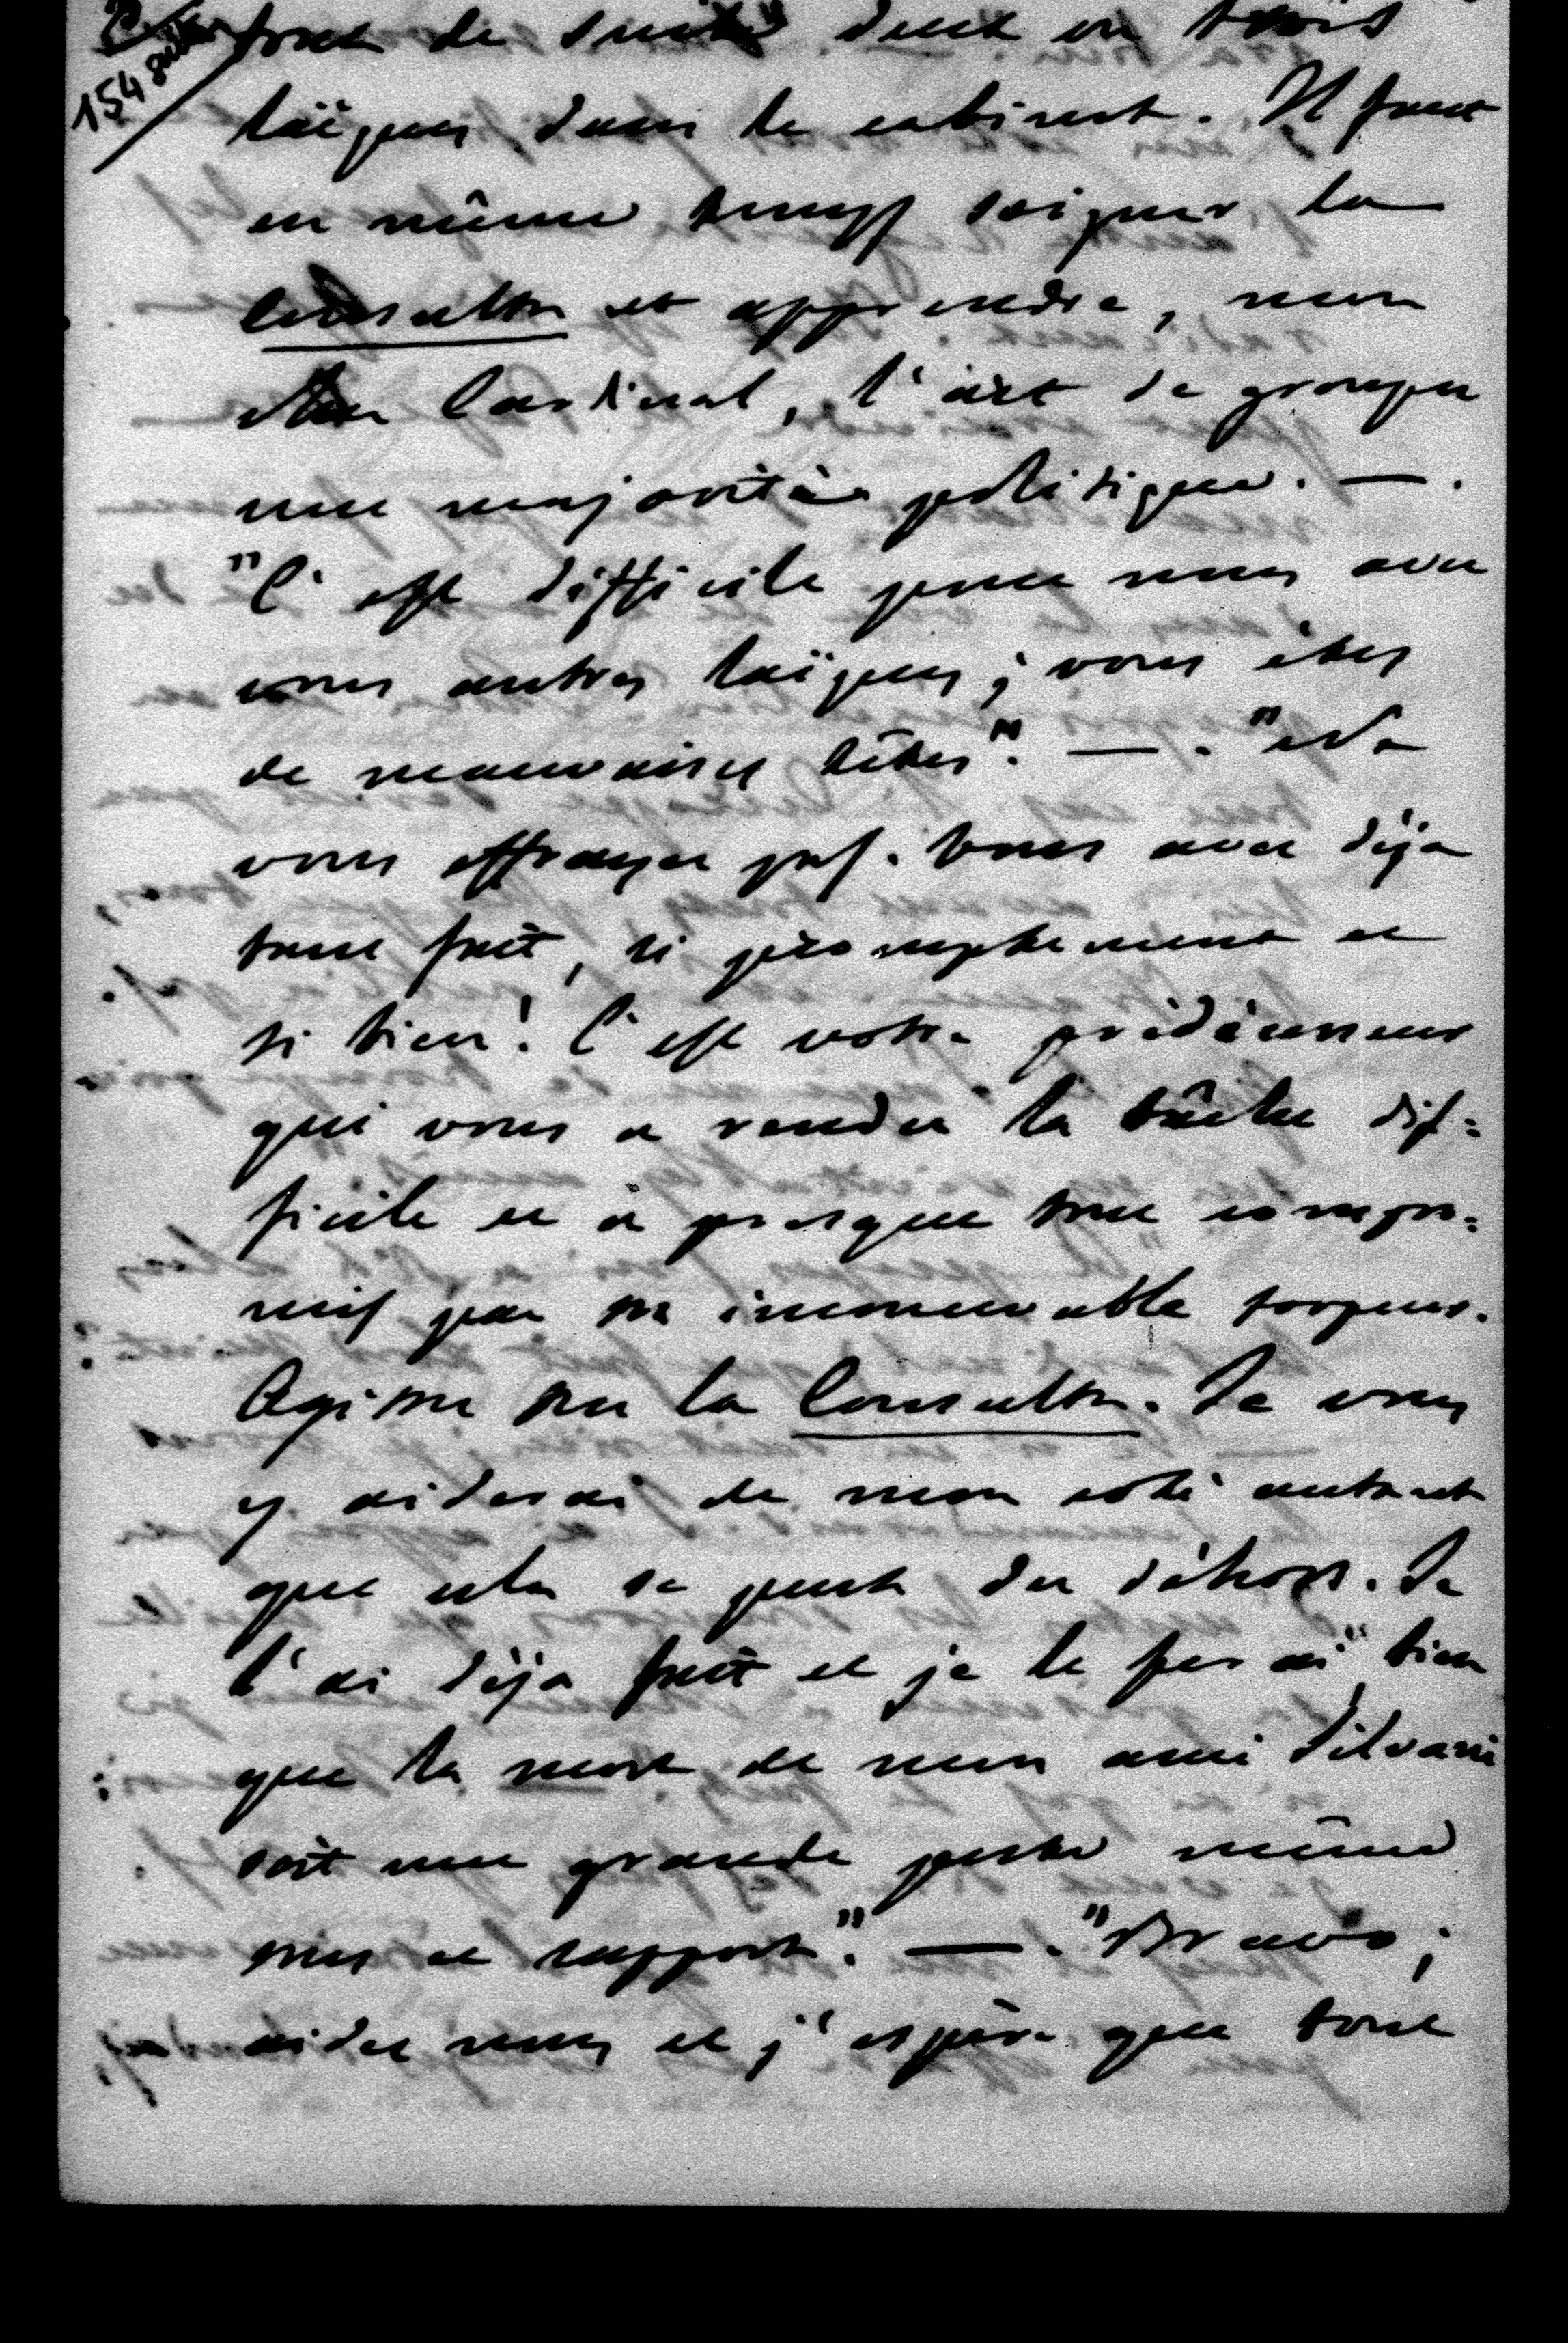 154 suite
tout de suite deux ou trois
laïques dans le cabinet. Il faut
en même temps soigner la
Consulta et apprendre, mon
cher Cardinal, l'art de grouper
une majorité politique. —.
"C'est difficile pour nous avec
vous autres laïques; vous êtes
de mauvaises têtes". —. "Ne
vous effrayez pas. Vous avez déja
tant fait, si promptement et
si bien! C'est votre prédécesseur
qui vous a rendu la tâche dif=
ficile et a presque tout compro=
mis par sa immuable torpeur.
Agissez sur la Consulta. Je vous
y aiderai de mon côté autant
que cela se peut du déhors. Je
l'ai déja fait et je le ferai bien
que la mort de mon ami Silvani
soit une grande perte même
sous ce rapport". —. "Bravo;
aidez nous et j'espère que tout